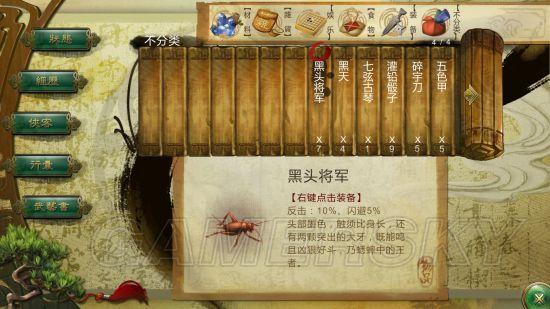 狀態
經歷
俠客
行囊
武器書
不分类
【材料】
【雜貨】
【娱乐】
【食物】
【装备】
【不分类】
4 / 4
黑头将军
X7
黑天
X4
七弦古琴
X1
灌铅骰子
X9
碎宇刀
X5
五色甲
X5
黑头将军
【右键点击装备】
反击：10%、闪避5%
头部墨色，触须比身长，还
有两颗突出的大牙，既能鸣
且凶狠好斗，乃蟋蟀中的王
者。
物品